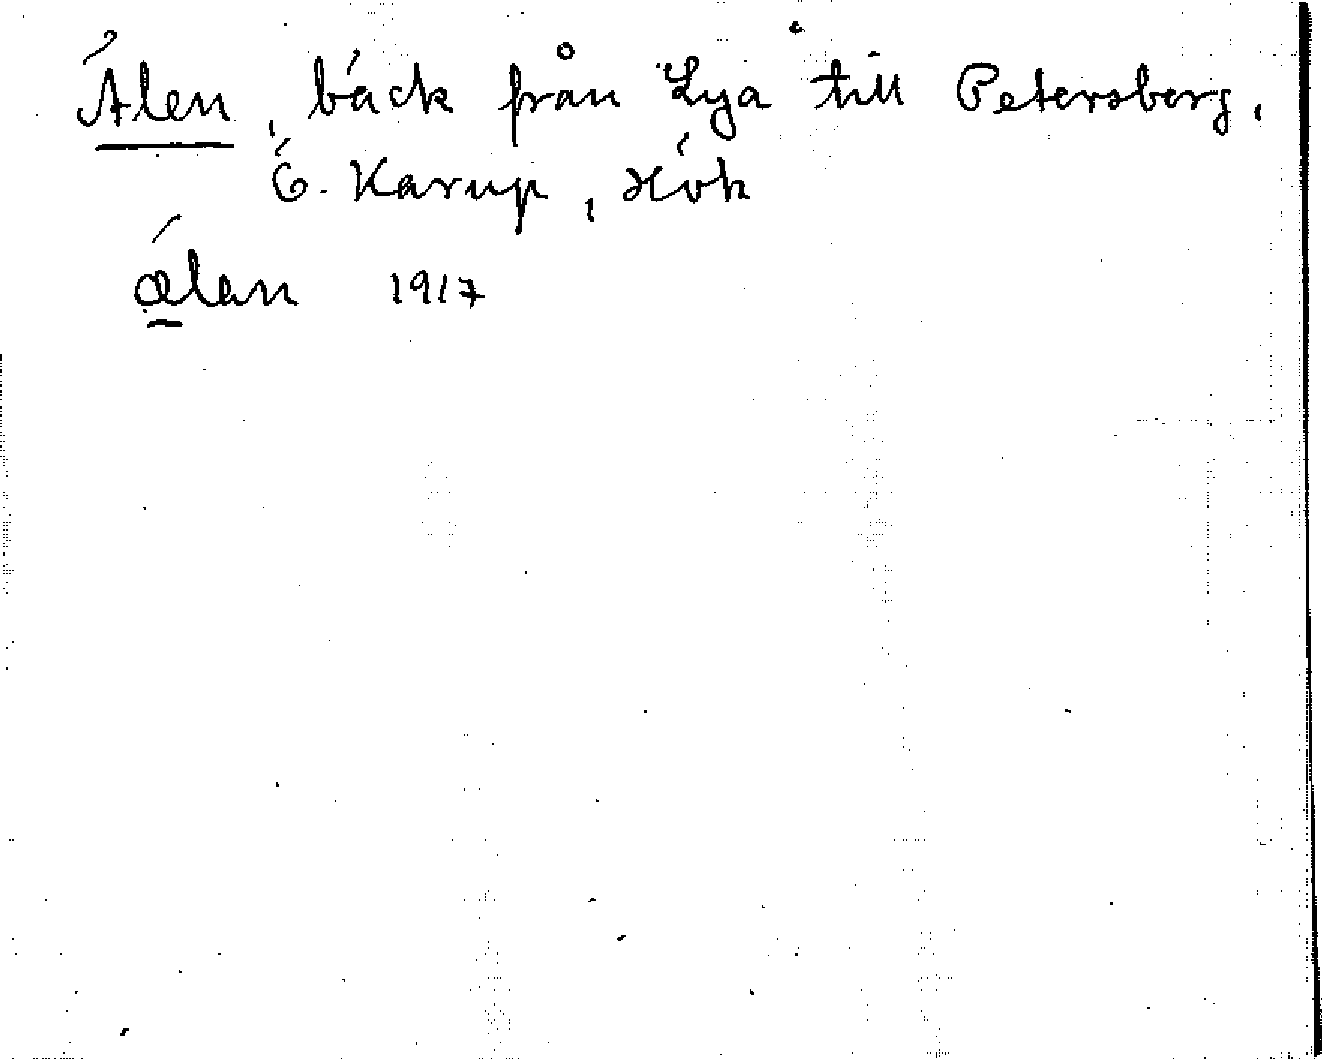 Ålen, bäck från Lya till Petersberg,
Ö. Karup, Hök
ælan 1917